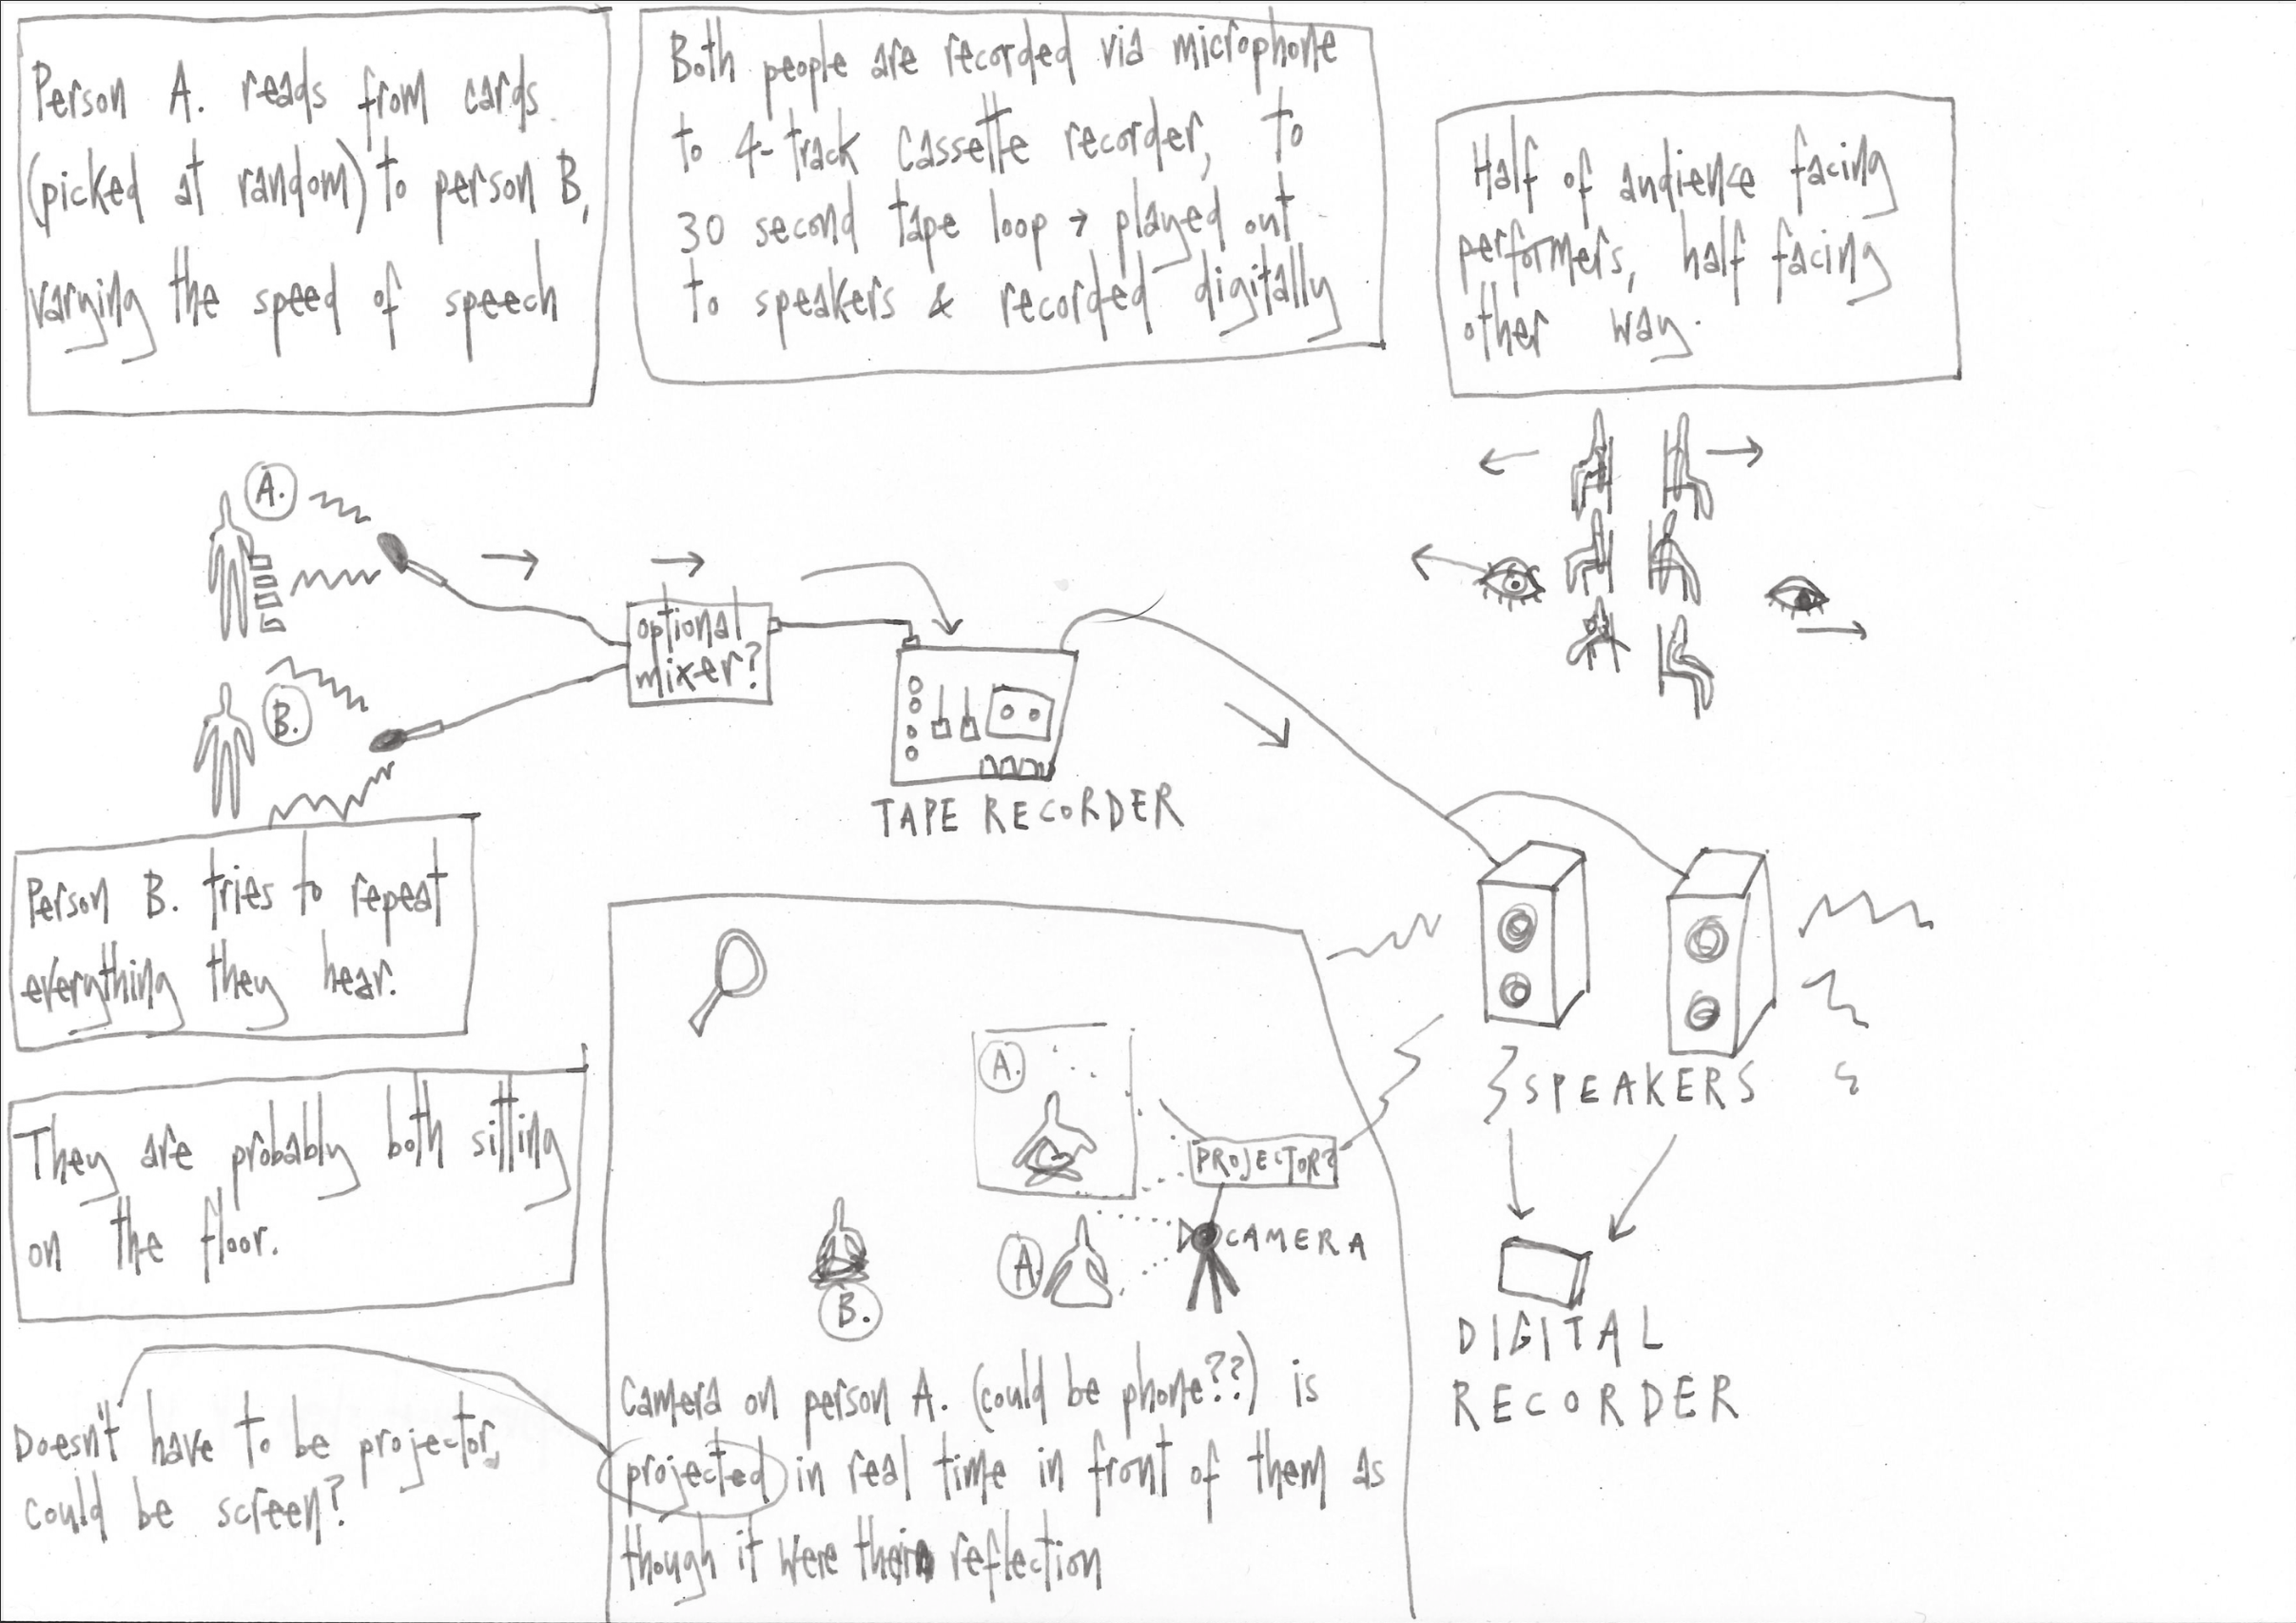 Person A. reads from cards
(picked at random) to person B,
varying the speed of speech
Both people are recorded via microphone
to 4-track cassette recorder, to
30 second tape loop → played out
to speakers & recorded digitally
Half of audience facing
performers, half facing
other way.
A.
B.
optional
mixer?
TAPE RECORDER
Person B. tries to repeat
everything they hear.
They are probably both sitting
on the floor.
Doesn't have to be projector,
could be screen?
A.
PROJECTOR?
CAMERA
A.
B.
Camera on person A. (could be phone??) is
projected in real time in front of them as
though it were their reflection
SPEAKERS
DIGITAL
RECORDER